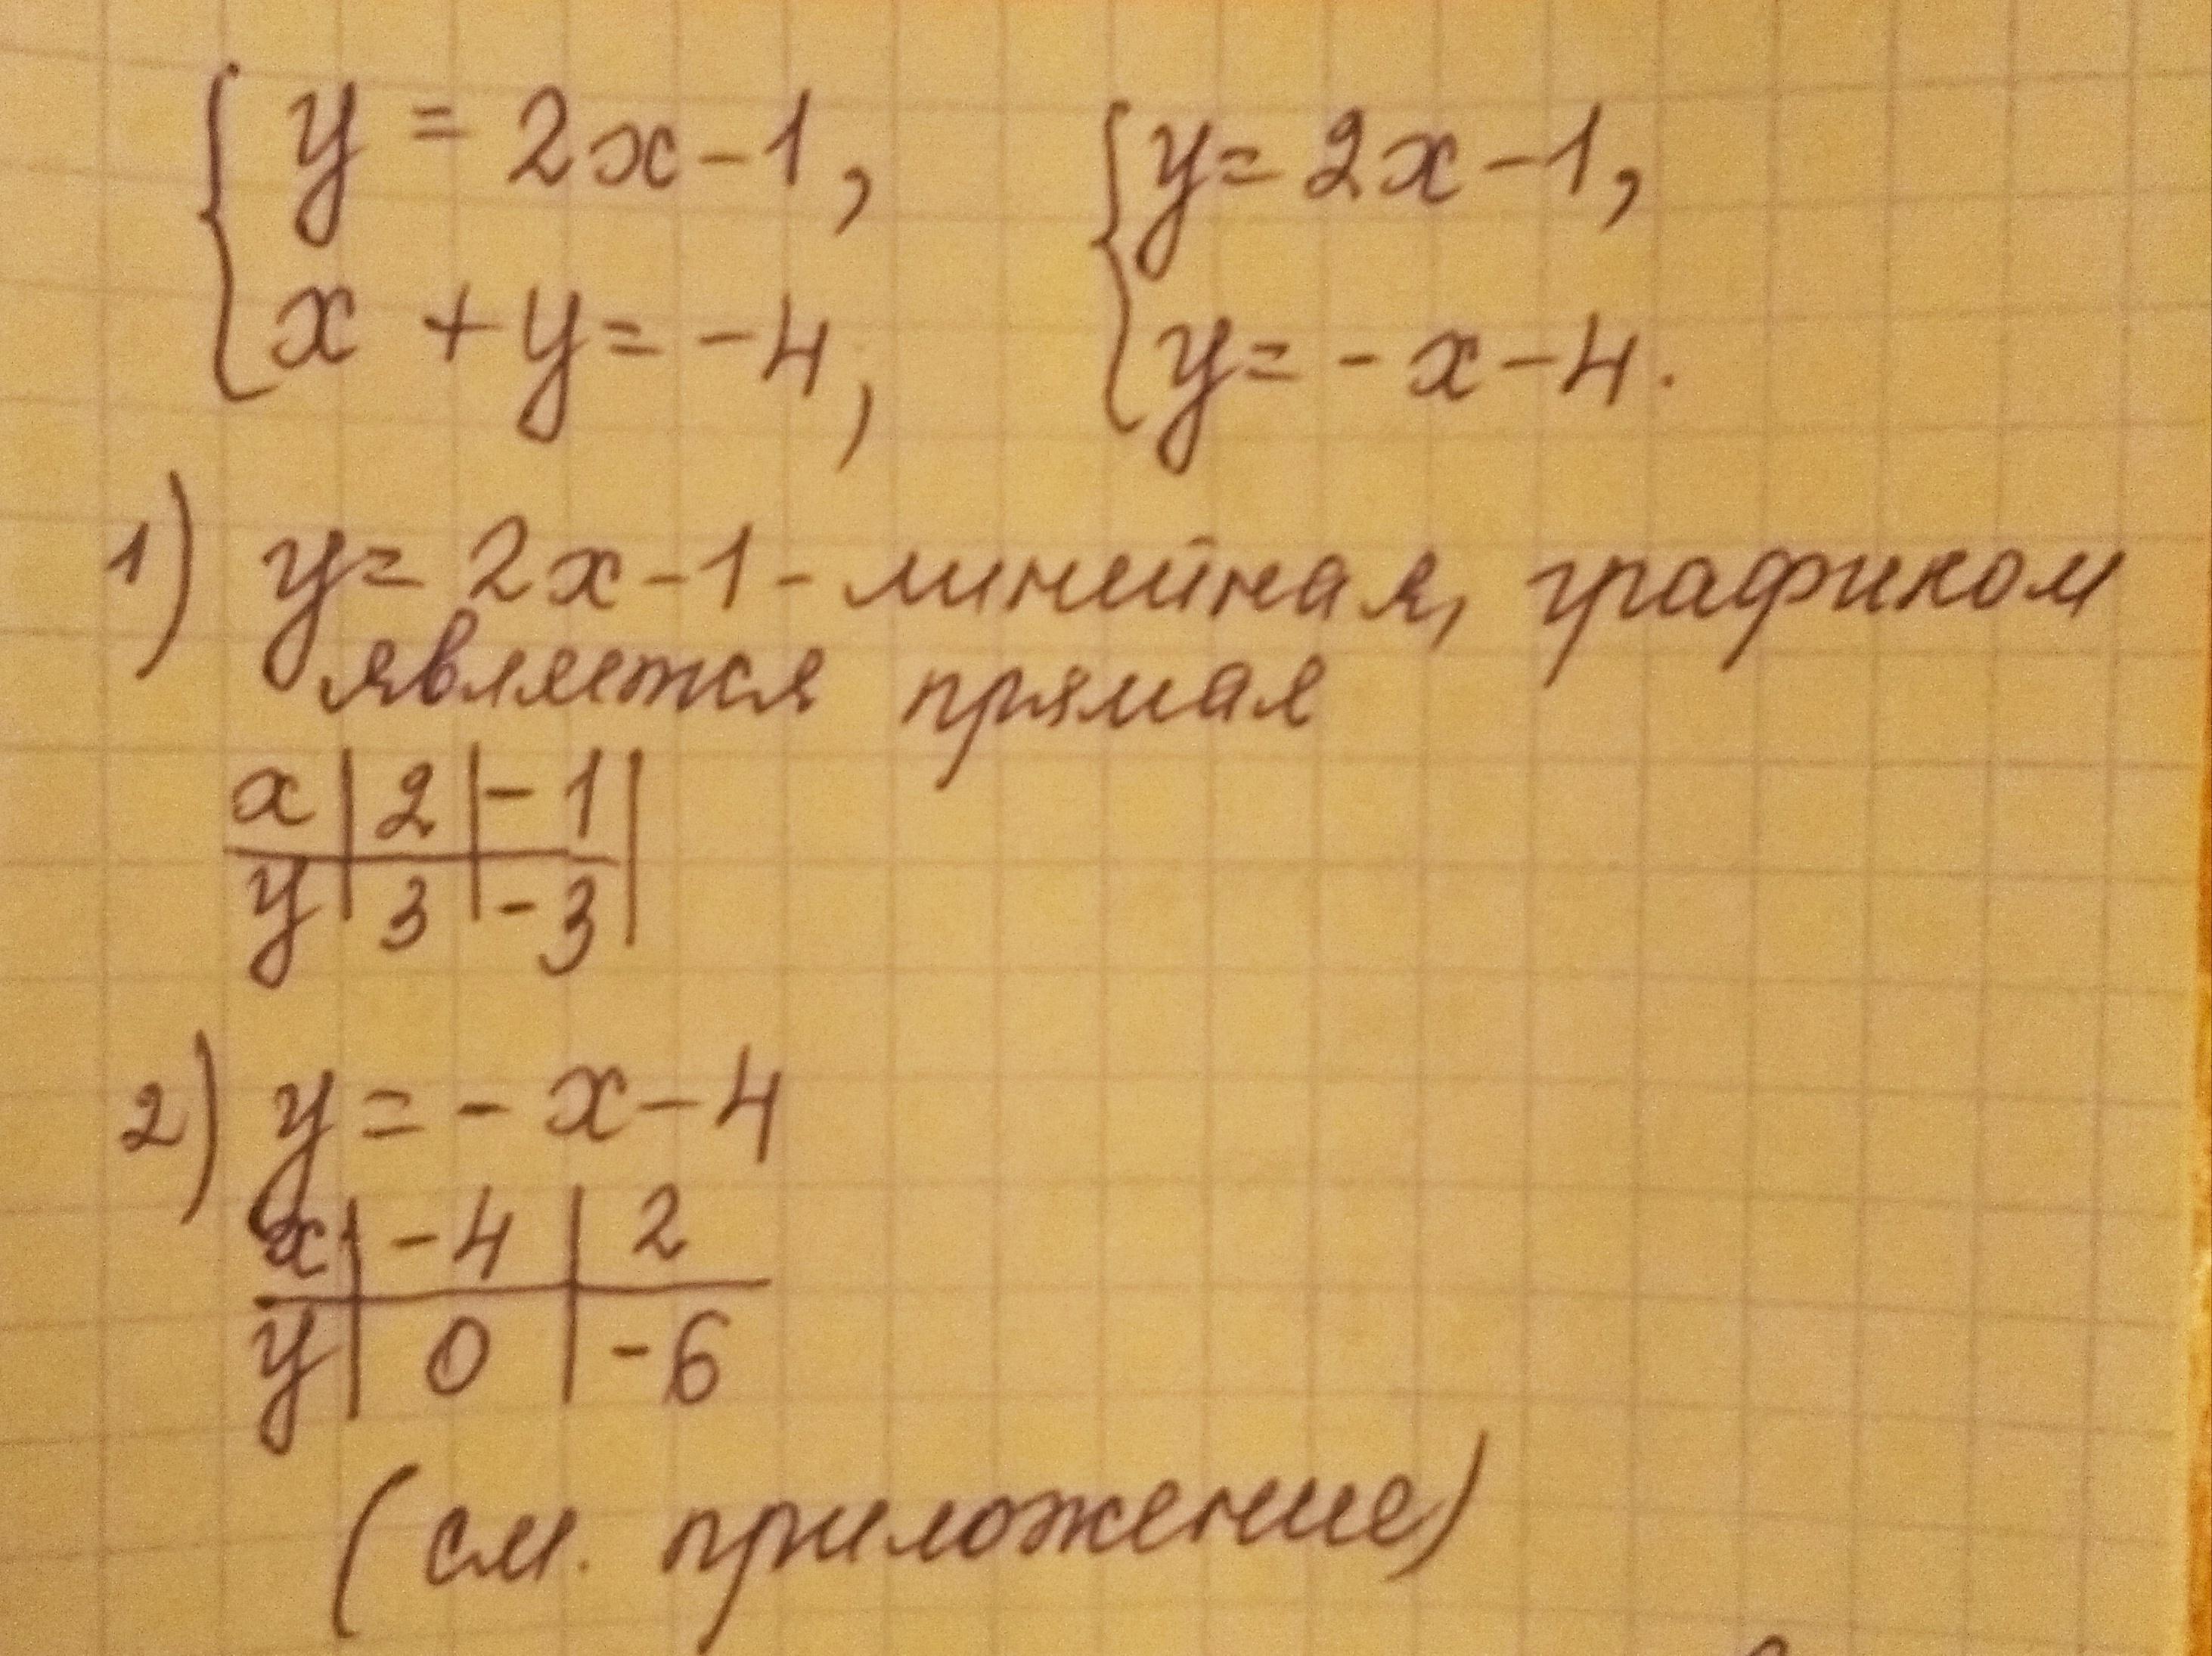 { y = 2x - 1, { y = 2x - 1,
{ x + y = -4, { y = -x - 4.
1) y = 2x - 1 - линейная, графиком
является прямая
x | 2 | -1 |
y | 3 | -3 |
2) y = -x - 4
x | -4 | 2
y | 0 | -6
(см. приложение)